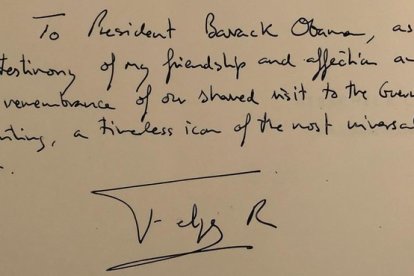 To President Barack Obama, as
testimony of my friendship and affection an
remembrance of our shared visit to the Guern
nting, a timeless icon of the most universal
Felipe R